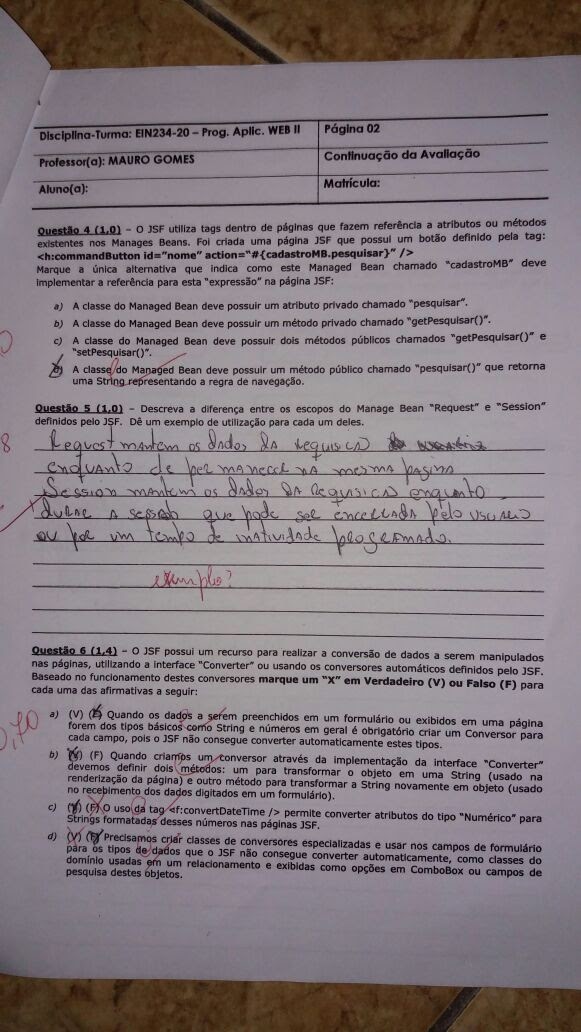 Disciplina-Turma: EIN234-20 – Prog. Aplic. WEB II
Página 02
Professor(a): MAURO GOMES
Continuação da Avaliação
Aluno(a):
Matrícula:
Questão 4 (1,0) – O JSF utiliza tags dentro de páginas que fazem referência a atributos ou métodos
existentes nos Manages Beans. Foi criada uma página JSF que possui um botão definido pela tag:
<h:commandButton id="nome" action="#{cadastroMB.pesquisar}" />
Marque a única alternativa que indica como este Managed Bean chamado "cadastroMB" deve
implementar a referência para esta "expressão" na página JSF:
a) A classe do Managed Bean deve possuir um atributo privado chamado "pesquisar".
b) A classe do Managed Bean deve possuir um método privado chamado "getPesquisar()".
c) A classe do Managed Bean deve possuir dois métodos públicos chamados "getPesquisar()" e
"setPesquisar()".
A classe do Managed Bean deve possuir um método público chamado "pesquisar()" que retorna
uma String representando a regra de navegação.
Questão 5 (1,0) – Descreva a diferença entre os escopos do Manage Bean "Request" e "Session"
definidos pelo JSF. Dê um exemplo de utilização para cada um deles.
8
Request mantem os dados da requisica
enquanto de permanecer na mesma pagina
Session mantem os dados da requisicao enquanto
durar a sessao que pode ser encerrada pelo usuario
ou por um tempo de inatividade programado.
exemplo?
Questão 6 (1,4) – O JSF possui um recurso para realizar a conversão de dados a serem manipulados
nas páginas, utilizando a interface "Converter" ou usando os conversores automáticos definidos pelo JSF.
Baseado no funcionamento destes conversores marque um "X" em Verdadeiro (V) ou Falso (F) para
cada uma das afirmativas a seguir:
0,70
a) (V) (F) Quando os dados a serem preenchidos em um formulário ou exibidos em uma página
forem dos tipos básicos como String e números em geral é obrigatório criar um Conversor para
cada campo, pois o JSF não consegue converter automaticamente estes tipos.
b) (V) (F) Quando criamos um conversor através da implementação da interface "Converter"
devemos definir dois métodos: um para transformar o objeto em uma String (usado na
renderização da página) e outro método para transformar a String novamente em objeto (usado
no recebimento dos dados digitados em um formulário).
c) (V) (F) O uso da tag <f:convertDateTime /> permite converter atributos do tipo "Numérico" para
Strings formatadas desses números nas páginas JSF.
d) (V) (F) Precisamos criar classes de conversores especializadas e usar nos campos de formulário
para os tipos de dados que o JSF não consegue converter automaticamente, como classes do
domínio usadas em um relacionamento e exibidas como opções em ComboBox ou campos de
pesquisa destes objetos.